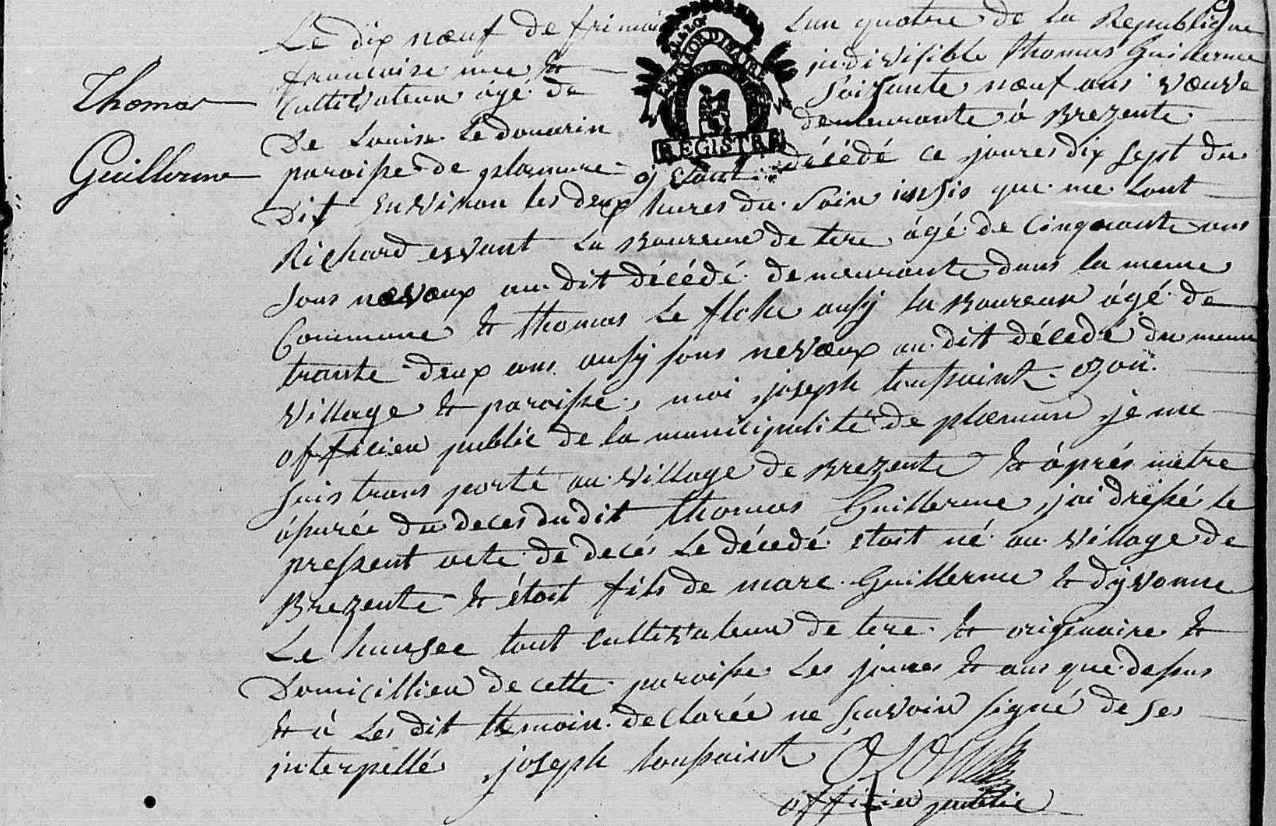 Le dix nœuf de frimai Lan quatre de la Republique
francoise une & indivisible Thomas Guillerme
Cultivateur agé de Soisante nœuf ans vœuve
De Louise Le douarin demeurante à Brezente
paroisse de plœmure Etant décédé ce joures dix sept du
Dit Environ les deux hures du Soir insis que me lont
Richard ewant La Boureure de tere âgé de Cinquante ans
Sous nœvœux au dit décédé demeurante dans la meme
Commune & thomas Le flohe ausy La Boureur âgé de
trante deux ans ausy sous nevœux au dit décedé du meme
village & paroisse, moi joseph toussaint ozou
officier public de la municipalité de plœmur je me
suis trans porté au village de Brezente & après mètre
àpurée du deces du dit thomas Guillerme j'ai dressé le
pressent acte de decés Le décedé étoit né au village de
Brezente & étoit fils de marc Guillerme & d'yvonne
Le hunsec tout Cultivateur de tere & originaire &
Domicillier de cette paroisse Les joures & ans que dessus
& à Les dit temoin declarée ne scavoir signé de ses
interpellé joseph toussaint Ozou
officier public
Thomas
Guillerme
EXTRAORDINAIRE
REGISTRE